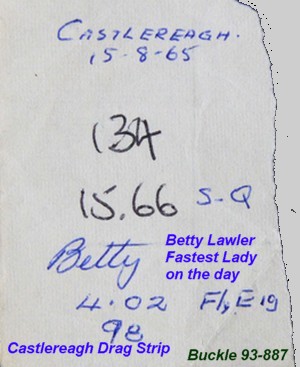 CASTLEREAGH.
15-8-65
134
15.66 S-Q
Betty
Betty Lawler
Fastest Lady
on the day
4.02 Fl, E 19
98
Castlereagh Drag Strip
Buckle 93-887